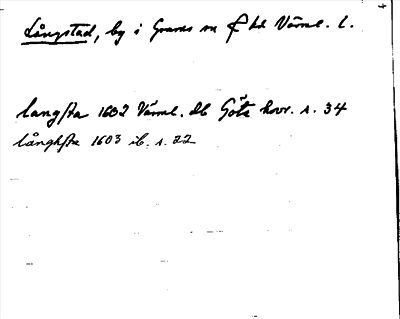 Långstad, by i Grums sn o hd Värml. l.
langsta 1602 Värml. db Göta hovr. s. 34
långhsta 1603 ib. s. 22